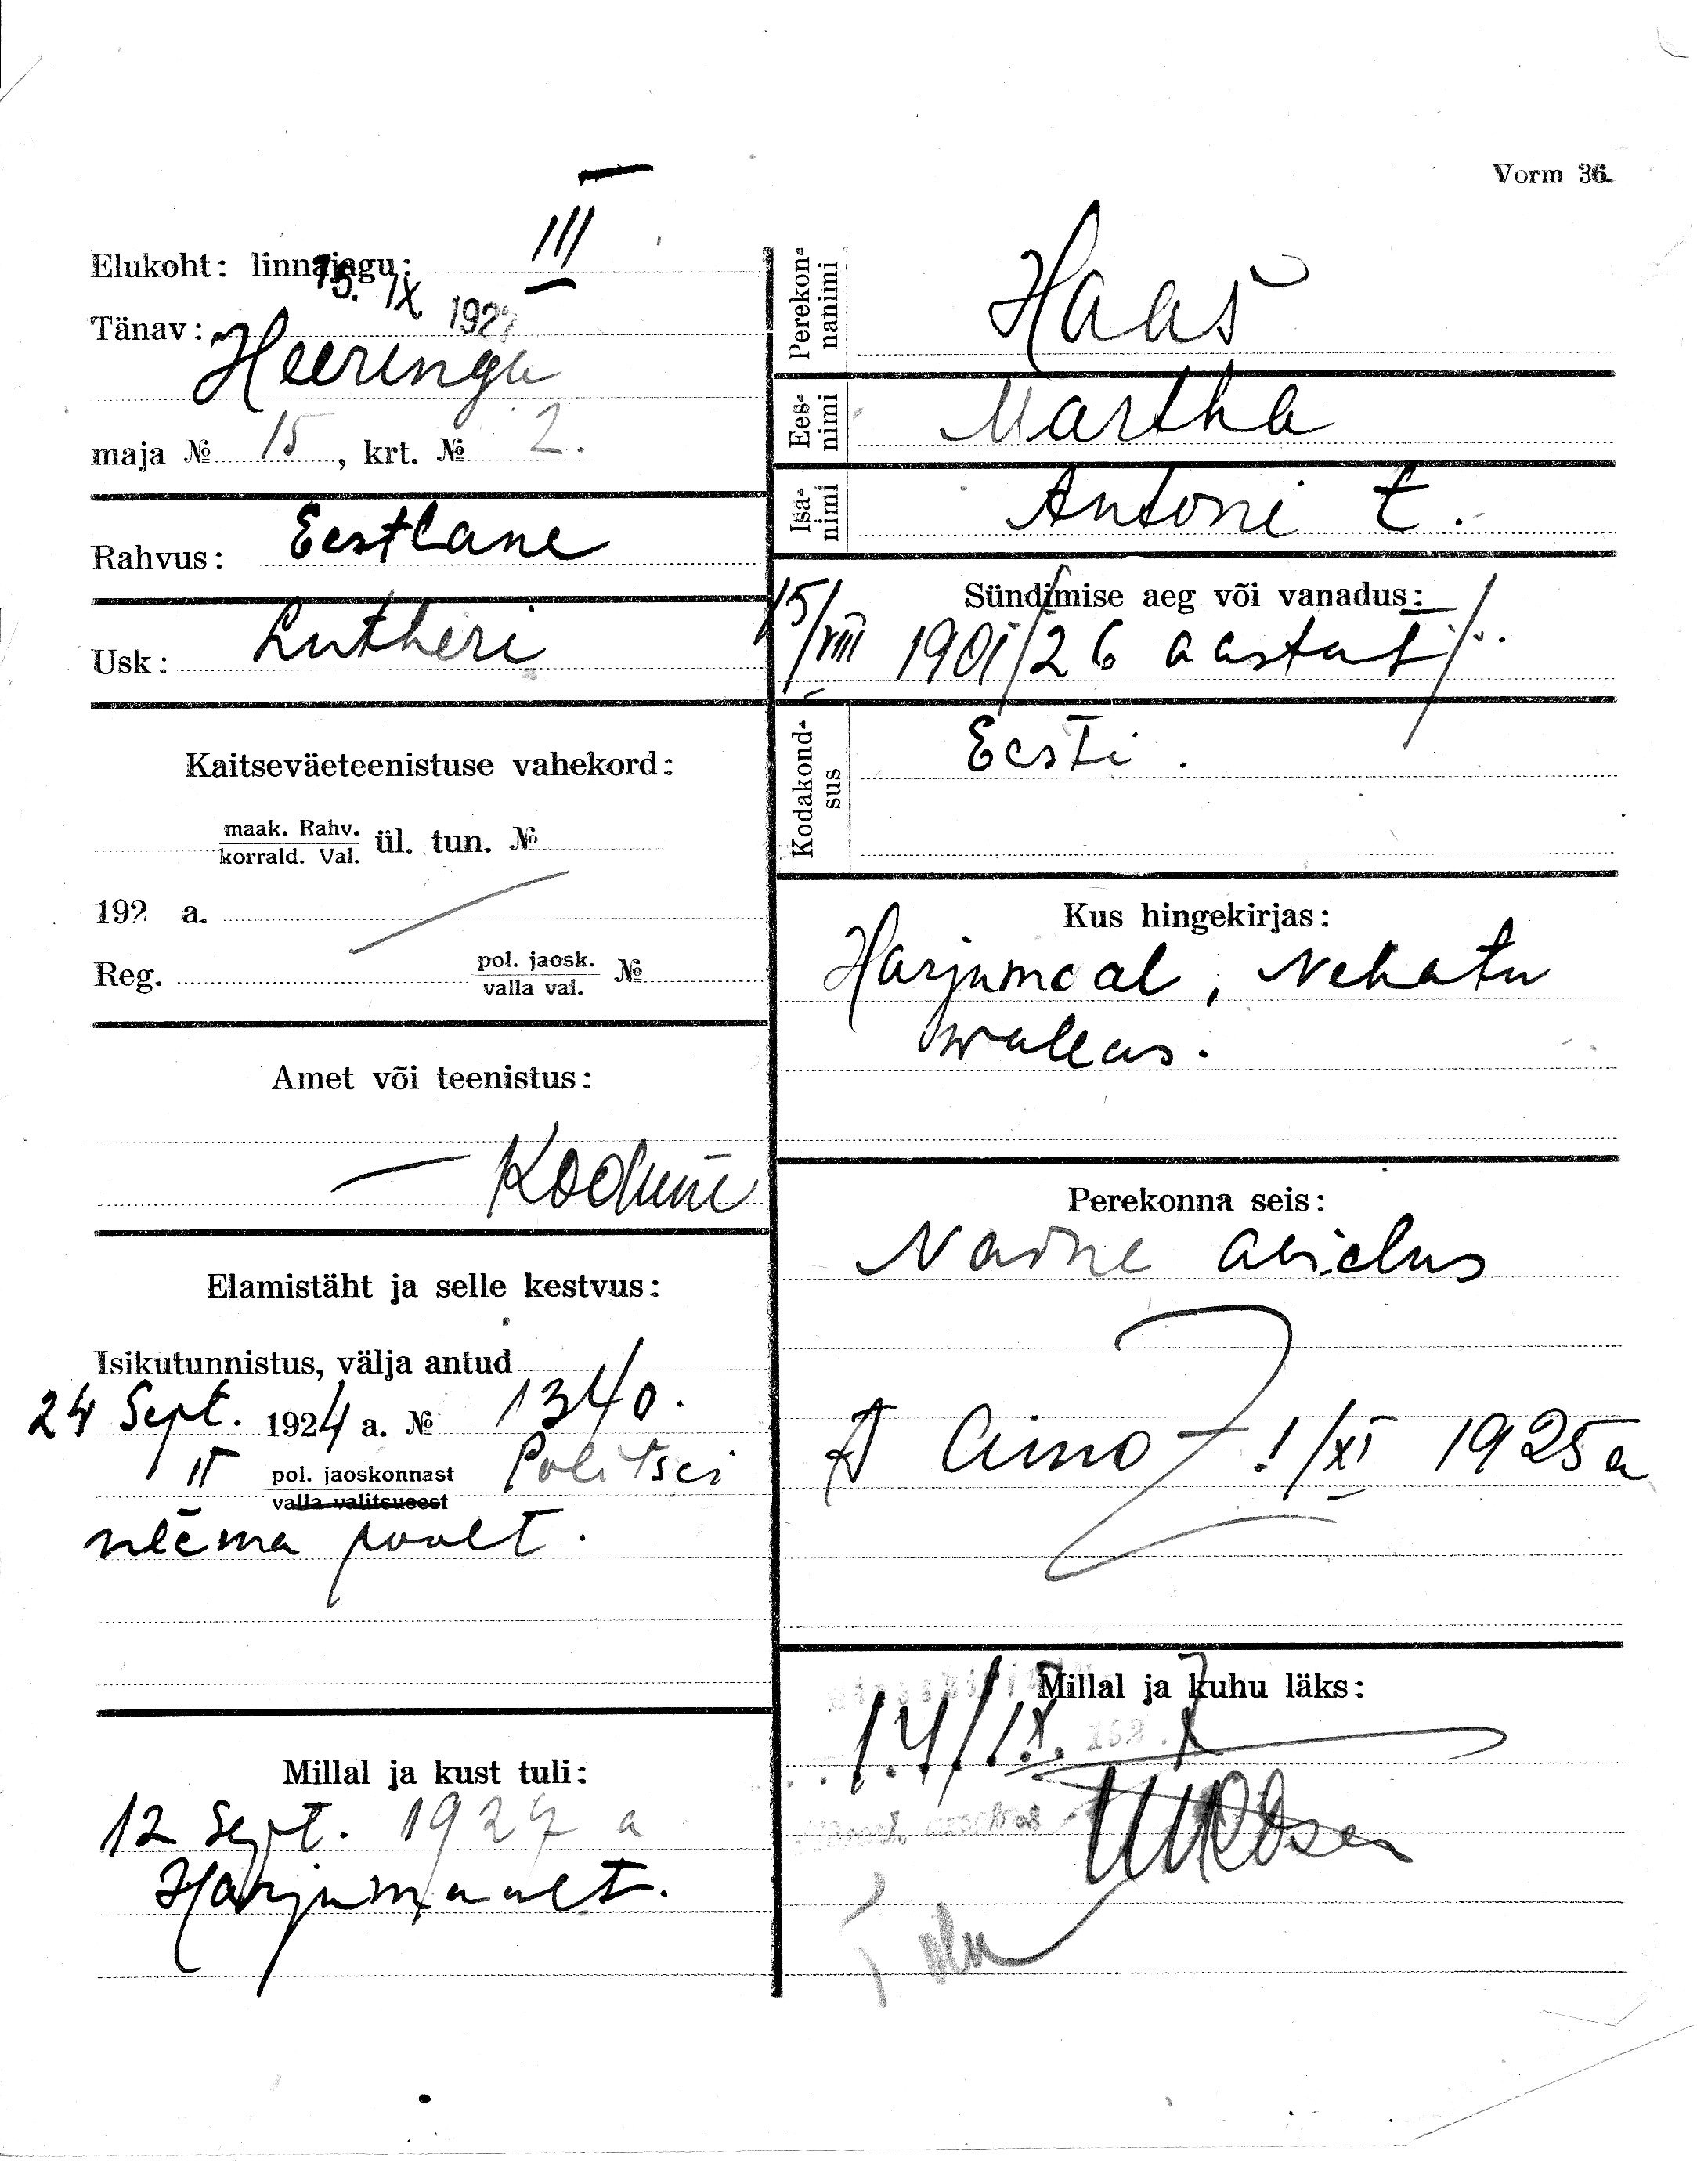 Vorm 36.
Elukoht: linnajagu: III
15. IX 192
Tänav: Heeringa
maja № 15, krt. № 2.
Rahvus: Eestlane
Usk: Lutheri
Kaitseväeteenistuse vahekord:
maak. Rahv.
korrald. Val. ül. tun. №
192 a.
Reg. pol. jaosk.
valla val. №
Amet või teenistus:
— Kodune
Elamistäht ja selle kestvus:
Isikutunnistus, välja antud
24 Sept. 1924 a. № 1340.
II pol. jaoskonnast Politsei
valla valitsusest
ülema poolt.
Millal ja kust tuli:
12 Sept. 1927 a
Harjumaalt.
Perekon-
nanimi
Haas
Ees-
nimi
Martha
Isa-
nimi
Antoni t.
Sündimise aeg või vanadus:
15/VIII 1901 /26 aastat/.
Kodakond-
sus
Eesti.
Kus hingekirjas:
Harjumaal, Nehatu
wallas.
Perekonna seis:
Naine abielus
Aino 1/XI 1925 a
Millal ja kuhu läks:
14/IX. 7